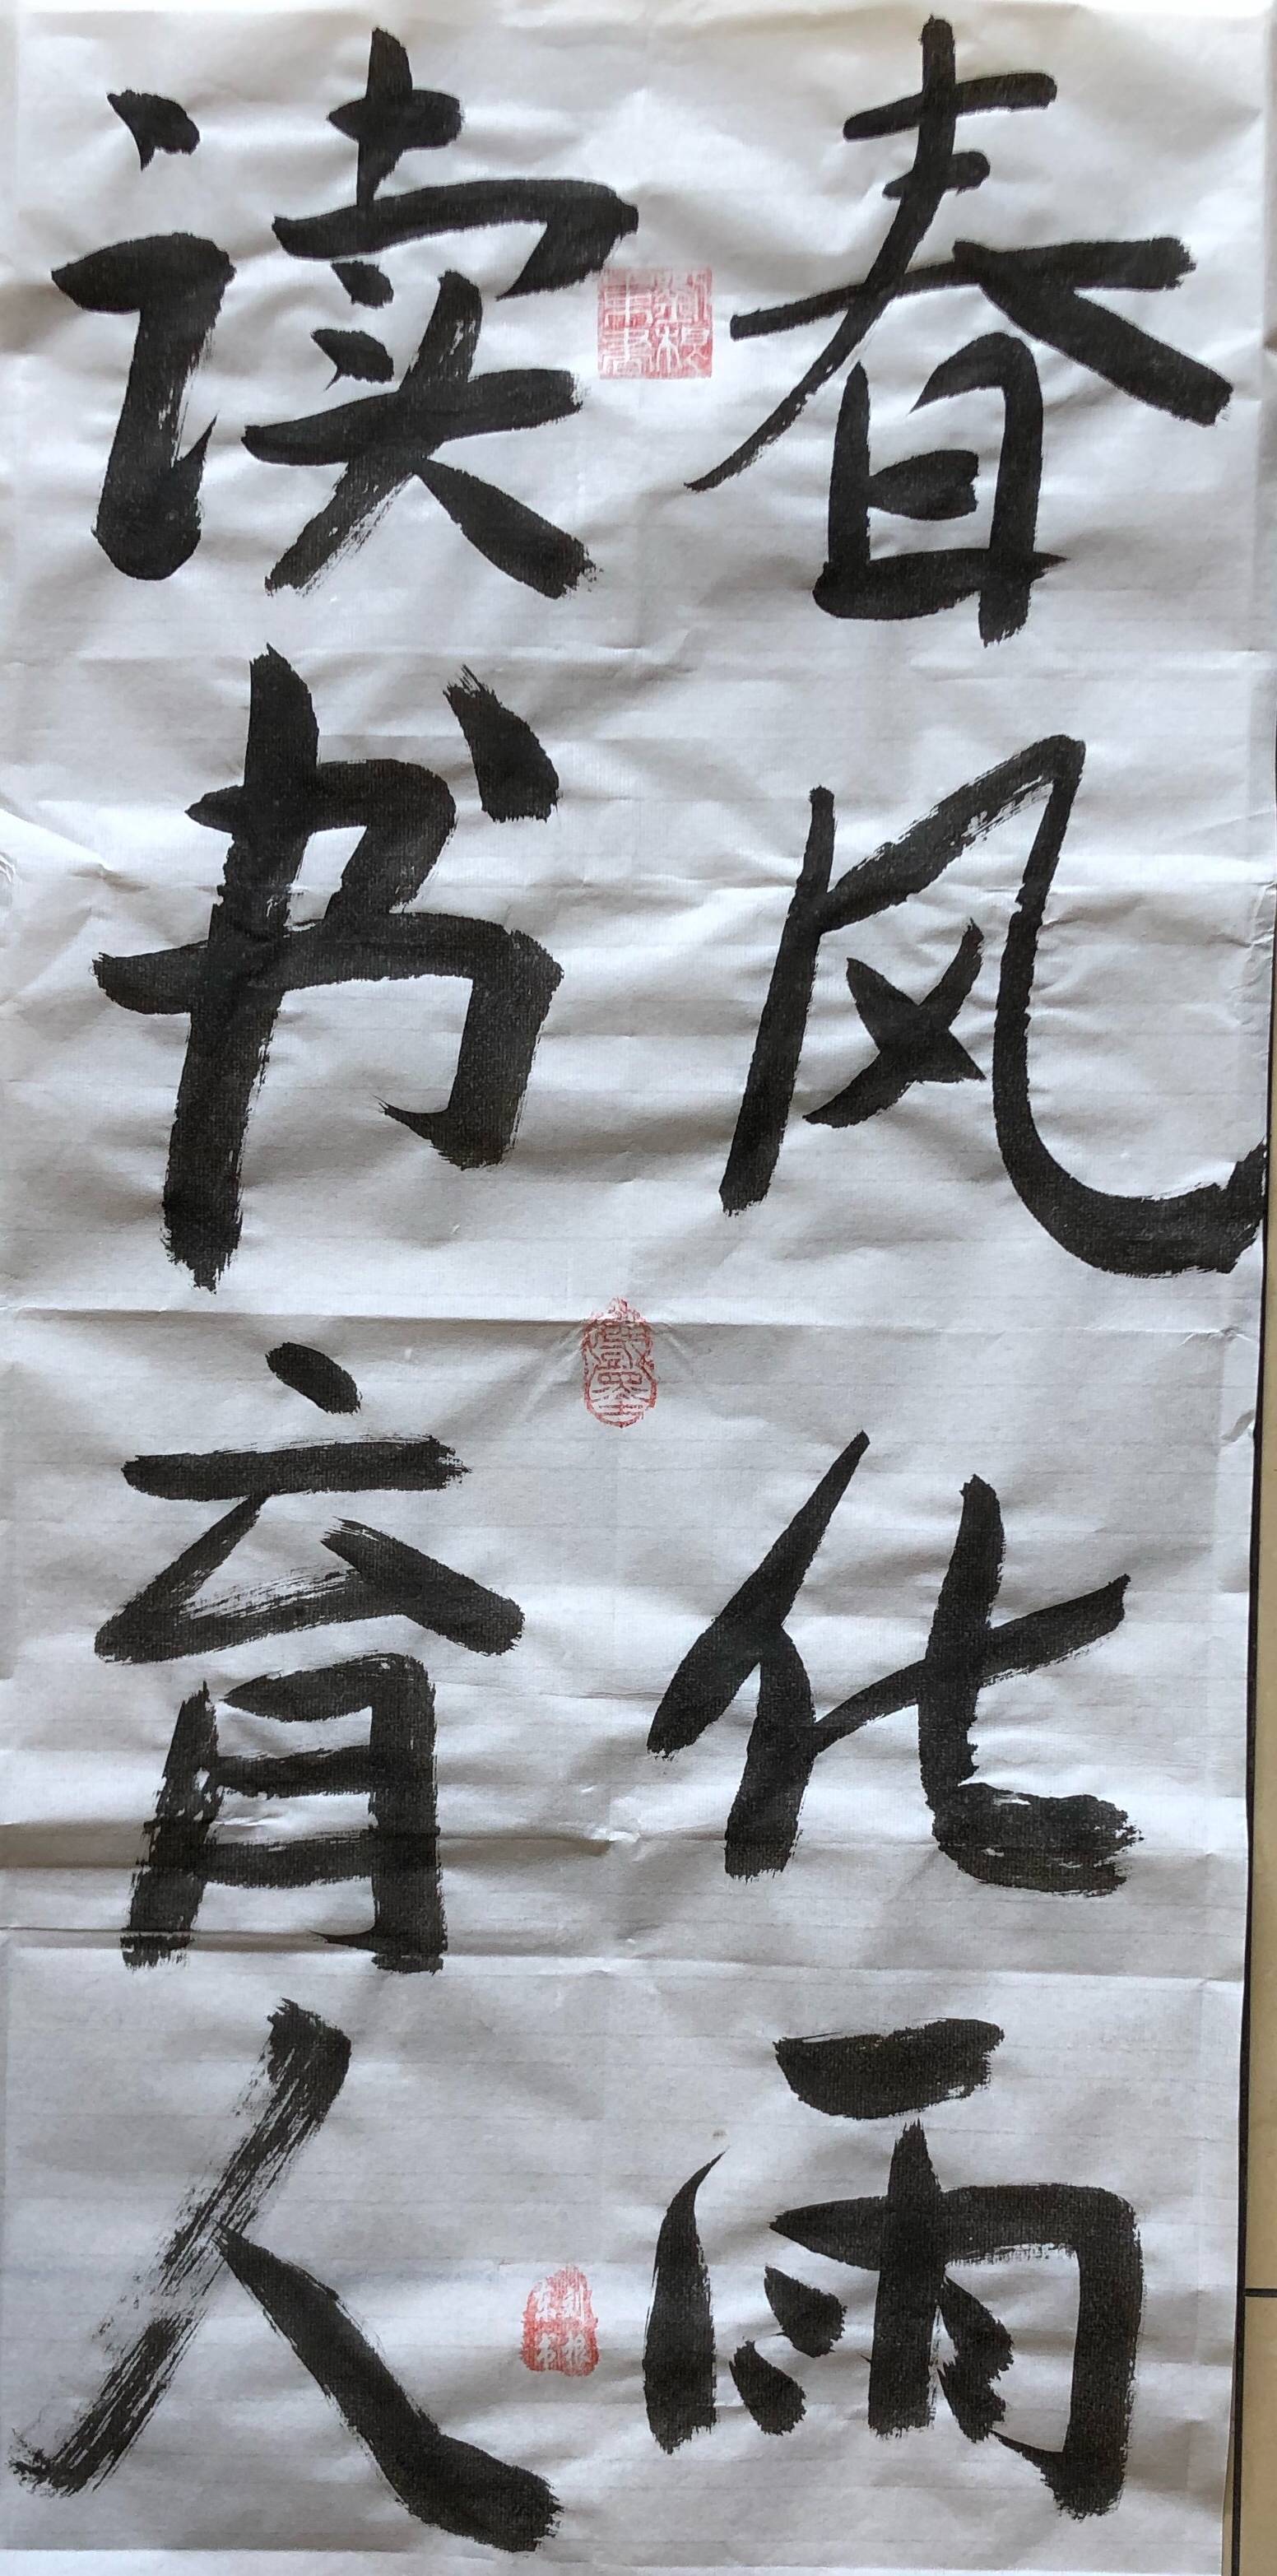 春风化雨
读书育人